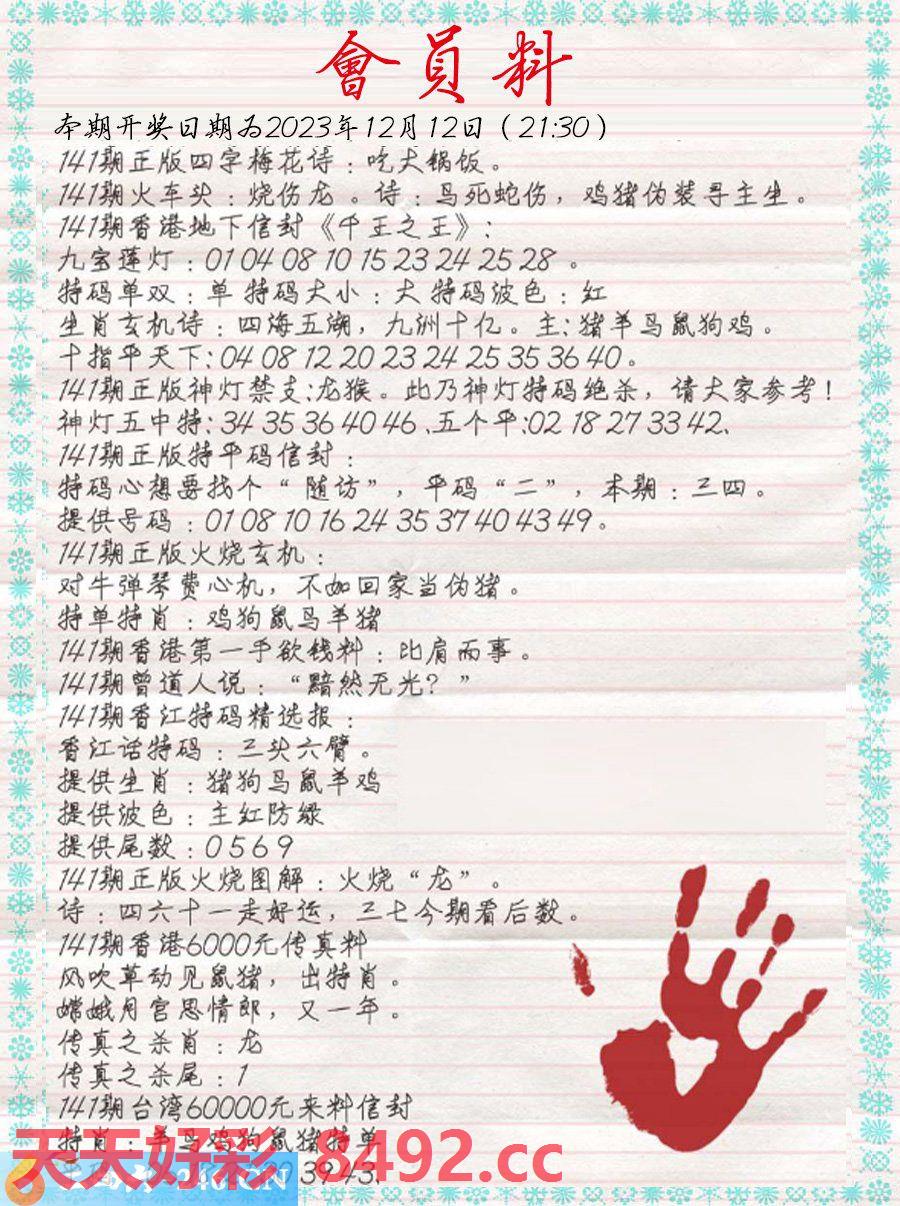 會員料
本期开奖日期为2023年12月12日（21:30）
141期正版四字梅花诗：吃大锅饭。
141期火车头：烧伤龙 。诗：鸟死蛇伤，鸡猪伪装寻主生。
141期香港地下信封《千王之王》：
九宝莲灯：01 04 08 10 15 23 24 25 28 。
特码单双：单 特码大小：大 特码波色：红
生肖玄机诗：四海五湖，九洲十亿。主:猪羊马鼠狗鸡。
十指平天下:04 08 12 20 23 24 25 35 36 40。
141期正版神灯禁支:龙猴。此乃神灯特码绝杀，请大家参考！
神灯五中特:34 35 36 40 46 .五个平:02 18 27 33 42.
141期正版特平码信封：
特码心想要找个“随访”，平码“二”，本期：三四。
提供号码：01 08 10 16 24 35 37 40 43 49。
141期正版火烧玄机：
对牛弹琴费心机，不如回家当伪猪。
特单特肖：鸡狗鼠马羊猪
141期香港第一手欲钱料：比肩而事。
141期曾道人说：“黯然无光？”
141期香江特码精选报：
香江话特码：三头六臂。
提供生肖：猪狗马鼠羊鸡
提供波色：主红防绿
提供尾数：0 5 6 9
141期正版火烧图解：火烧“龙”。
诗：四六十一走好运，三七今期看后数。
141期香港6000元传真料
风吹草动见鼠猪，出特肖。
嫦娥月宫思情郎，又一年。
传真之杀肖：龙
传真之杀尾：1
141期台湾60000元来料信封
特肖：羊马鸡狗鼠猪特单
天天好彩 8492.cc
39 43.